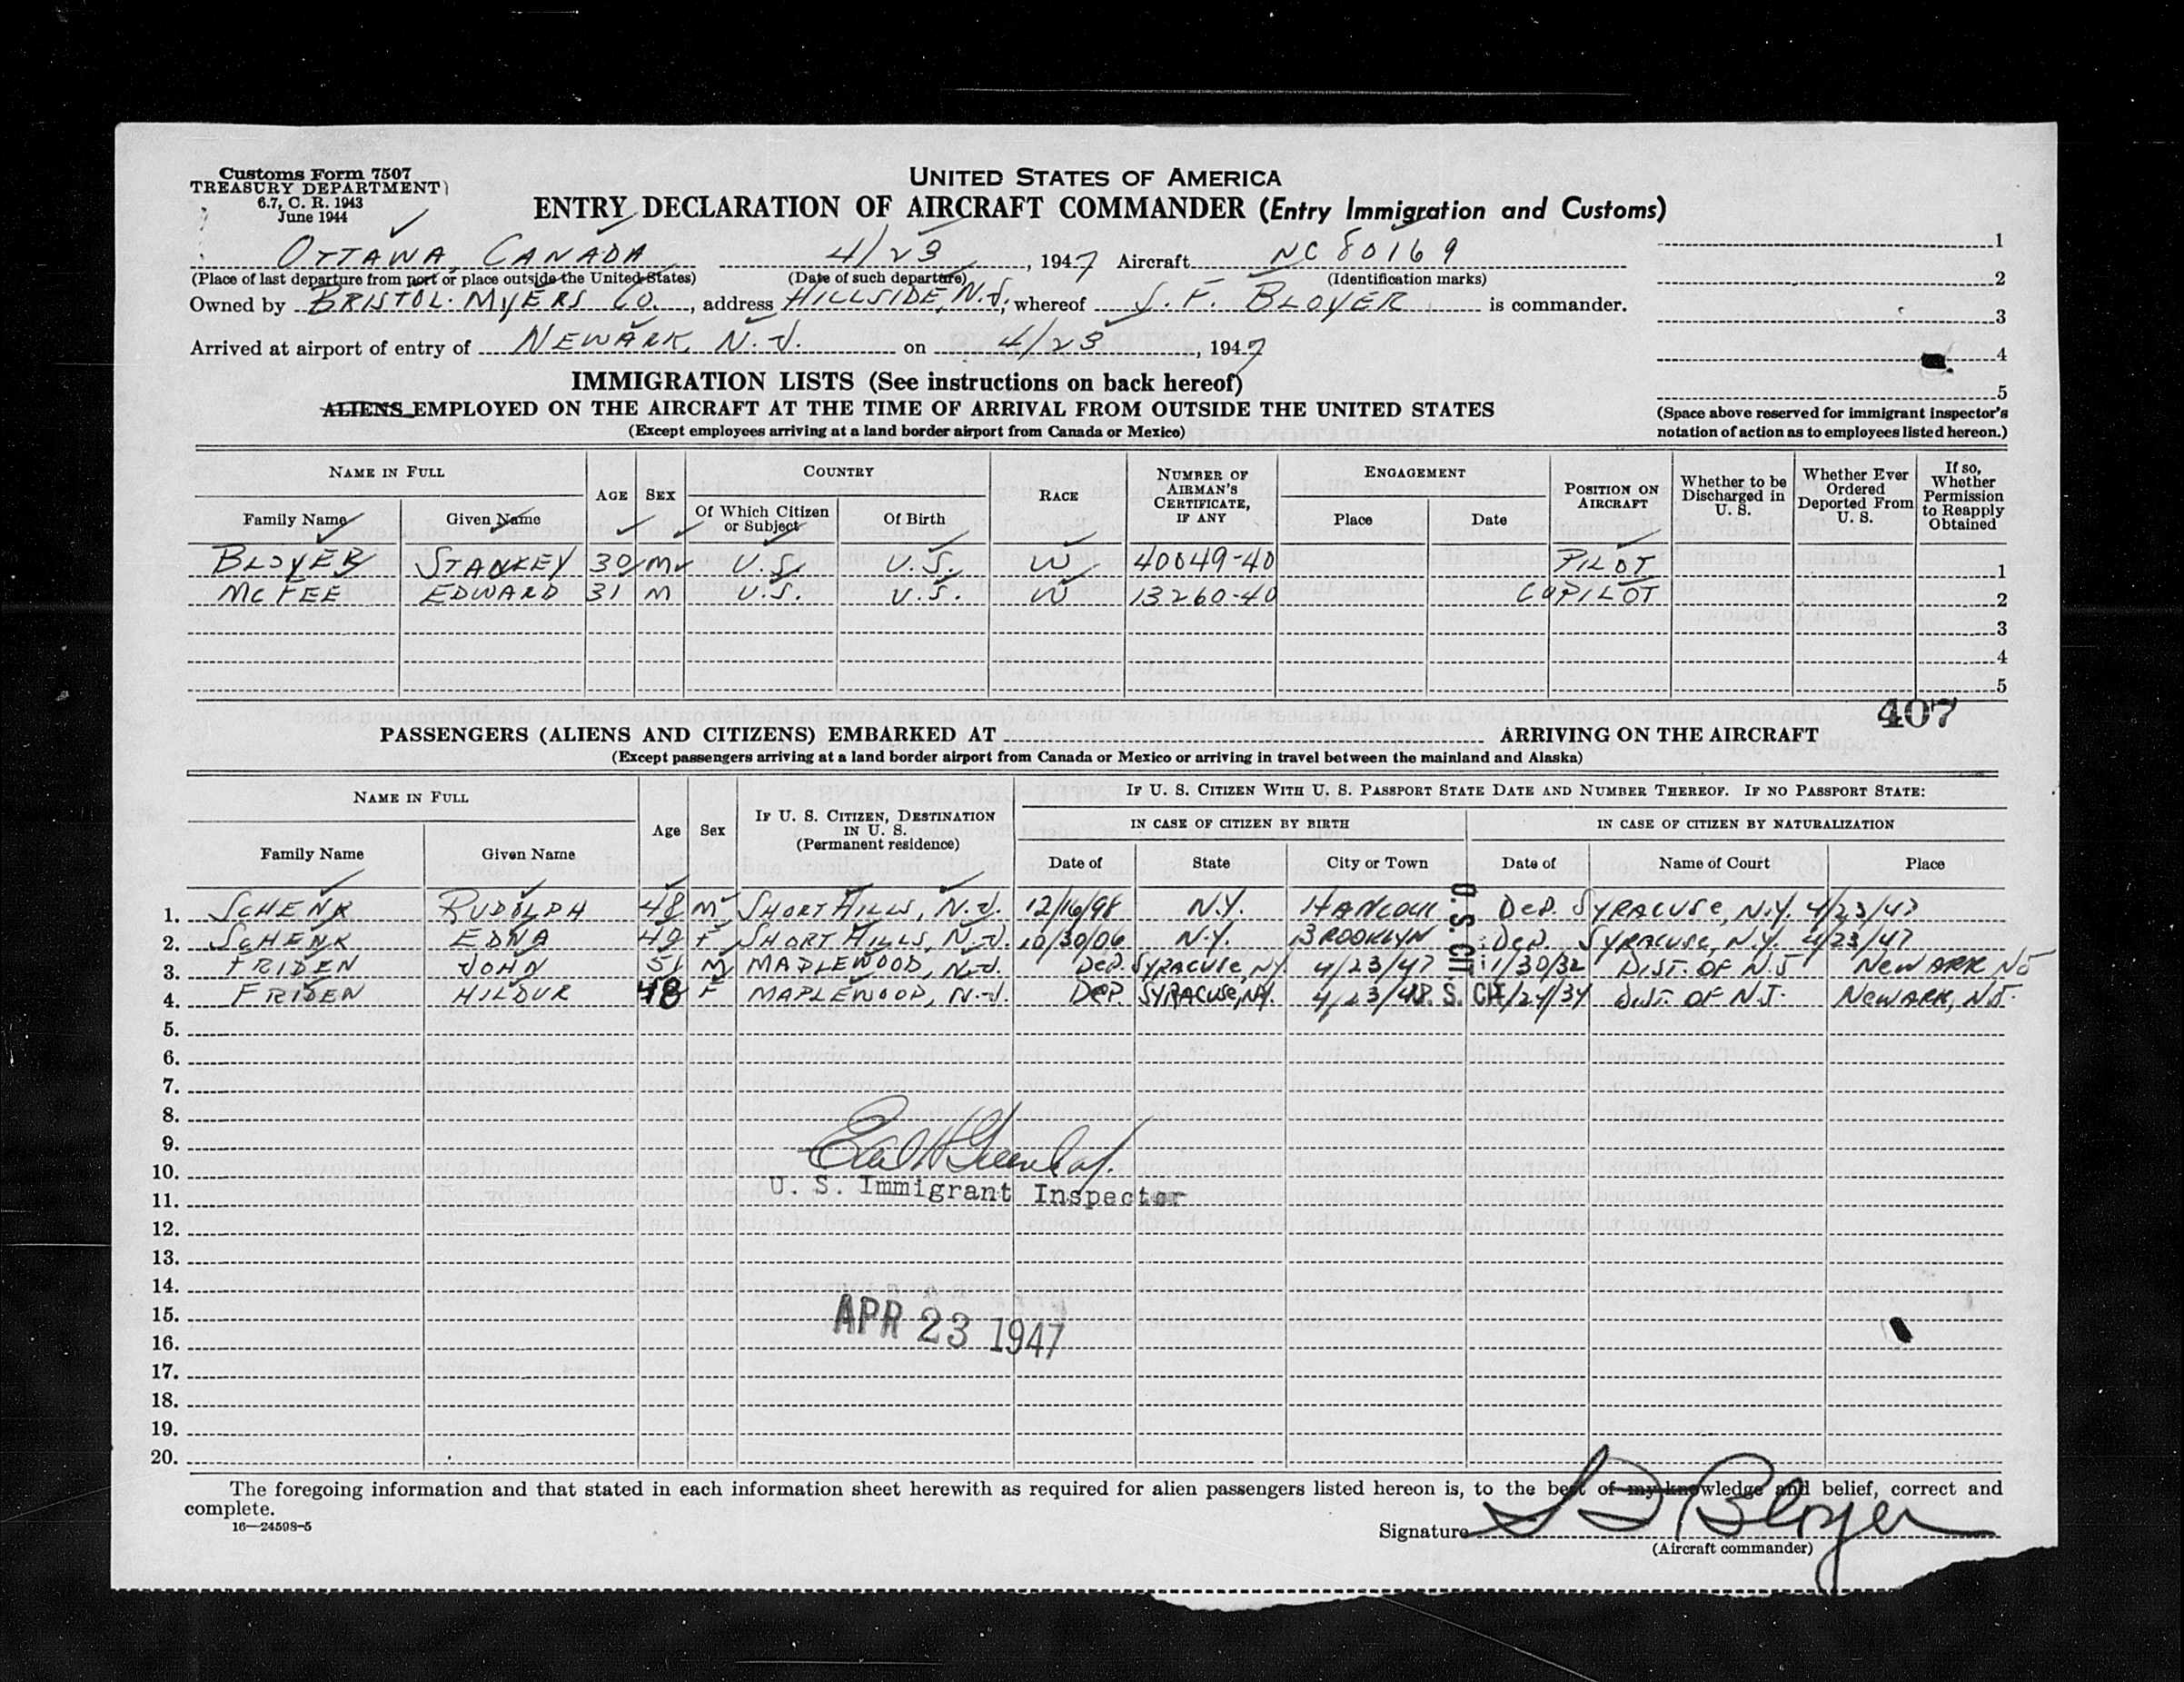 Customs Form 7507
TREASURY DEPARTMENT
6.7, C. R. 1943
June 1944
UNITED STATES OF AMERICA
ENTRY DECLARATION OF AIRCRAFT COMMANDER (Entry Immigration and Customs)
OTTAWA, CANADA 4/23, 1947 Aircraft NC 80169
(Place of last departure from port or place outside the United States) (Date of such departure) (Identification marks)
Owned by BRISTOL-MYERS CO., address HILLSIDE, N.J., whereof S. F. BLOYER is commander.
Arrived at airport of entry of NEWARK, N.J. on 4/23, 1947
1
2
3
4
5
(Space above reserved for immigrant inspector's
notation of action as to employees listed hereon.)
IMMIGRATION LISTS (See instructions on back hereof)
ALIENS EMPLOYED ON THE AIRCRAFT AT THE TIME OF ARRIVAL FROM OUTSIDE THE UNITED STATES
(Except employees arriving at a land border airport from Canada or Mexico)
NAME IN FULL AGE SEX COUNTRY RACE NUMBER OF AIRMAN'S CERTIFICATE, IF ANY ENGAGEMENT POSITION ON AIRCRAFT Whether to be Discharged in U. S. Whether Ever Ordered Deported From U. S. If so, Whether Permission to Reapply Obtained
Family Name Given Name Of Which Citizen or Subject Of Birth Place Date
BLOYER STANLEY 30 M U.S. U.S. W 40049-40 PILOT 1
MCFEE EDWARD 31 M U.S. U.S. W 13260-40 COPILOT 2
3
4
5
407
PASSENGERS (ALIENS AND CITIZENS) EMBARKED AT ARRIVING ON THE AIRCRAFT
(Except passengers arriving at a land border airport from Canada or Mexico or arriving in travel between the mainland and Alaska)
NAME IN FULL Age Sex IF U. S. CITIZEN, DESTINATION IN U. S. (Permanent residence) IF U. S. CITIZEN WITH U. S. PASSPORT STATE DATE AND NUMBER THEREOF. IF NO PASSPORT STATE:
IN CASE OF CITIZEN BY BIRTH IN CASE OF CITIZEN BY NATURALIZATION
Family Name Given Name Date of State City or Town Date of Name of Court Place
1. SCHENK RUDOLPH 48 M SHORT HILLS, N.J. 12/16/98 N.Y. HANCOCK U.S. CIT Dep. SYRACUSE, N.Y. 4/23/47
2. SCHENK EDNA 40 F SHORT HILLS, N.J. 10/30/06 N.Y. BROOKLYN Dep. SYRACUSE, N.Y. 4/23/47
3. FRIDEN JOHN 51 M MAPLEWOOD, N.J. Dep. SYRACUSE, NY 4/23/47 11/30/32 DIST. OF N.J NEWARK NJ
4. FRIDEN HILDUR 48 F MAPLEWOOD, N.J. Dep. SYRACUSE, NY. 4/23/4 U.S. CIT /24/34 DIST. OF N.J. NEWARK, NJ.
5.
6.
7.
8.
9.
10.
11.
U. S. Immigrant Inspector
12.
13.
14.
15.
APR 23 1947
16.
17.
18.
19.
20.
The foregoing information and that stated in each information sheet herewith as required for alien passengers listed hereon is, to the best of my knowledge and belief, correct and
complete.
16—24598-5
Signature S F Bloyer
(Aircraft commander)